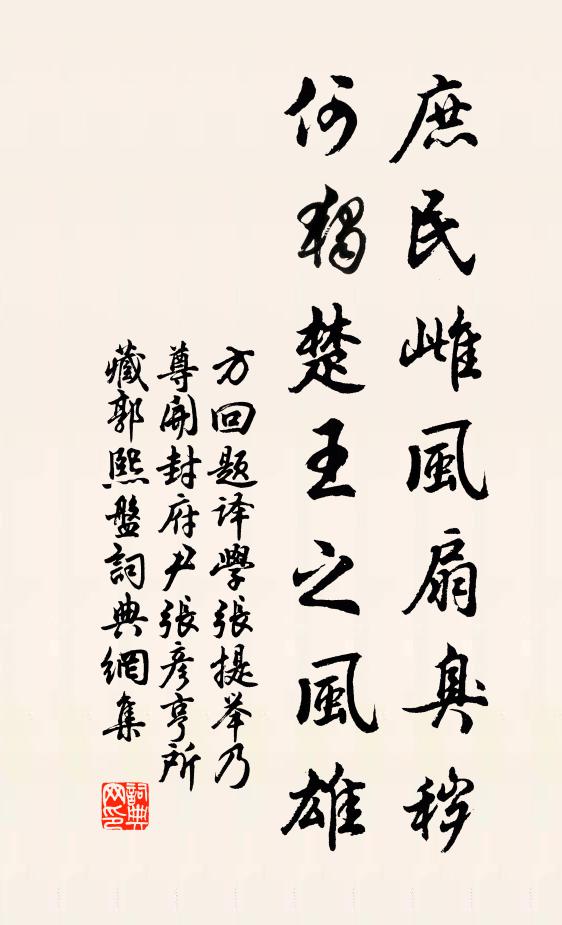 庶民雌風扇臭穢
何獨楚王之風雄
方回题译學張提举乃
尊開封府尹張彦亨所
藏郭熙盤詞典網集
詞典
网印